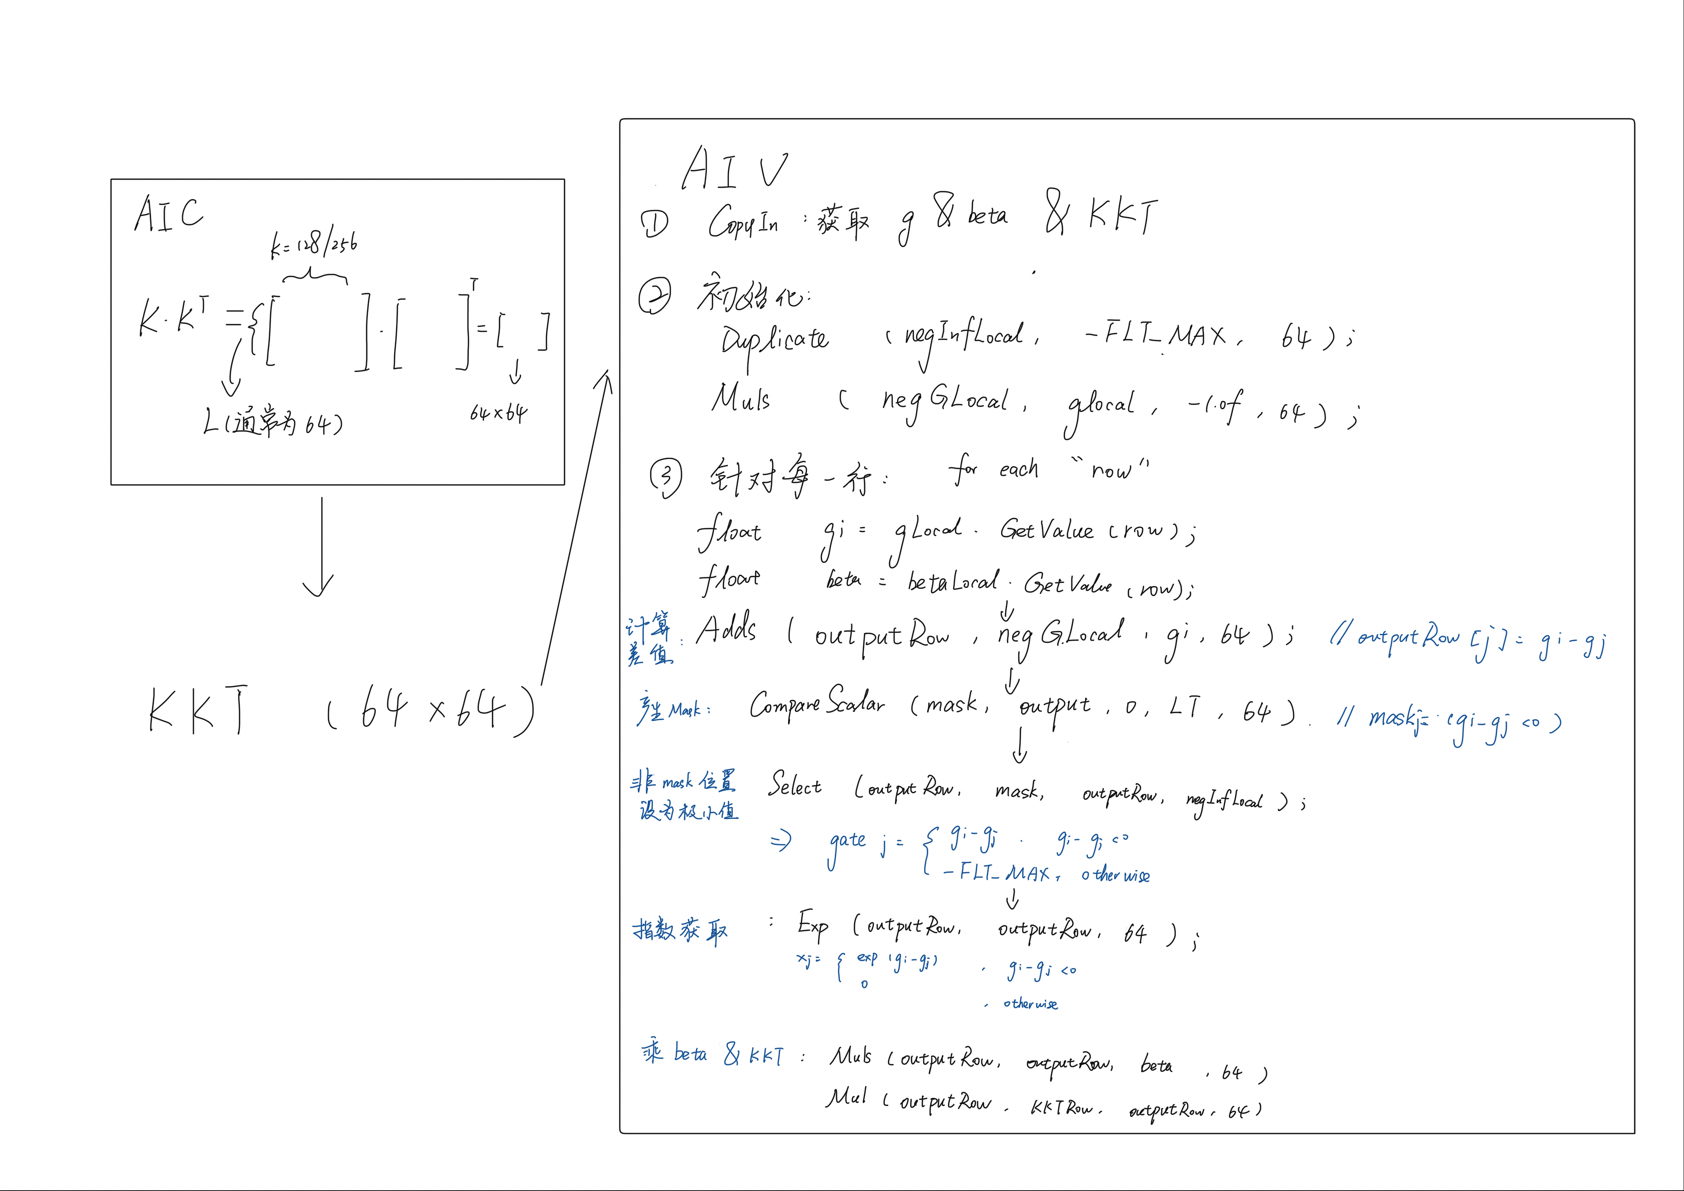 AIC
k=128/256
K·K^T = {[ ]·[ ]^T = [ ]
L(通常为64)
64×64
KKT (64×64)
AIV
① CopyIn:获取 g & beta & KKT
② 初始化:
Duplicate (negInfLocal, -FLT_MAX, 64);
Muls ( negGLocal, glocal, -1.0f, 64);
③ 针对每一行: for each "row"
float gi = gLocal. GetValue(row);
float beta = betaLocal. GetValue(row);
计算差值: Adds ( outputRow, negGLocal, gi, 64); // outputRow[j]= gi-gj
产生Mask: CompareScalar (mask, output, 0, LT, 64). // maskj= (gi-gj <0)
非mask位置设为极小值 Select (outputRow, mask, outputRow, negInfLocal);
=> gate j = { gi-gj . gi-gj <0
-FLT_MAX, otherwise
指数获取 : Exp (outputRow, outputRow, 64);
xj= { exp(gi-gj) , gi-gj <0
0 , otherwise
乘 beta & KKT : Muls (outputRow, outputRow, beta, 64)
Mul (outputRow, KKTRow, outputRow, 64)